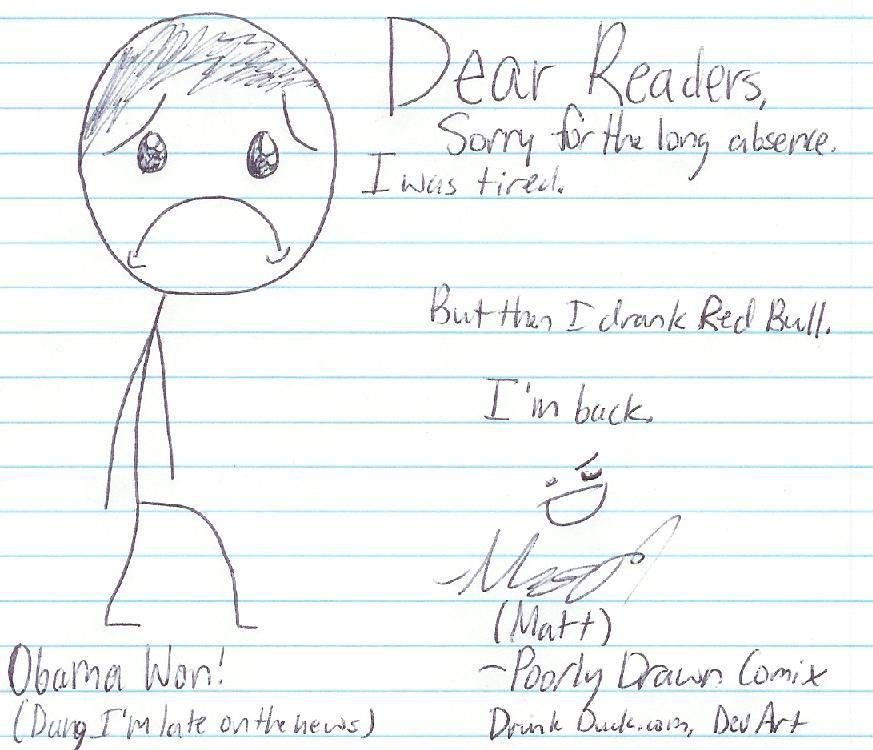 Dear Readers,
Sorry for the long absence.
I was tired.
But then I drank Red Bull.
I'm back.
(Matt)
~Poorly Drawn Comix
Drink Duck.com, Dev Art
Obama Won!
(Dang I'm late on the news)